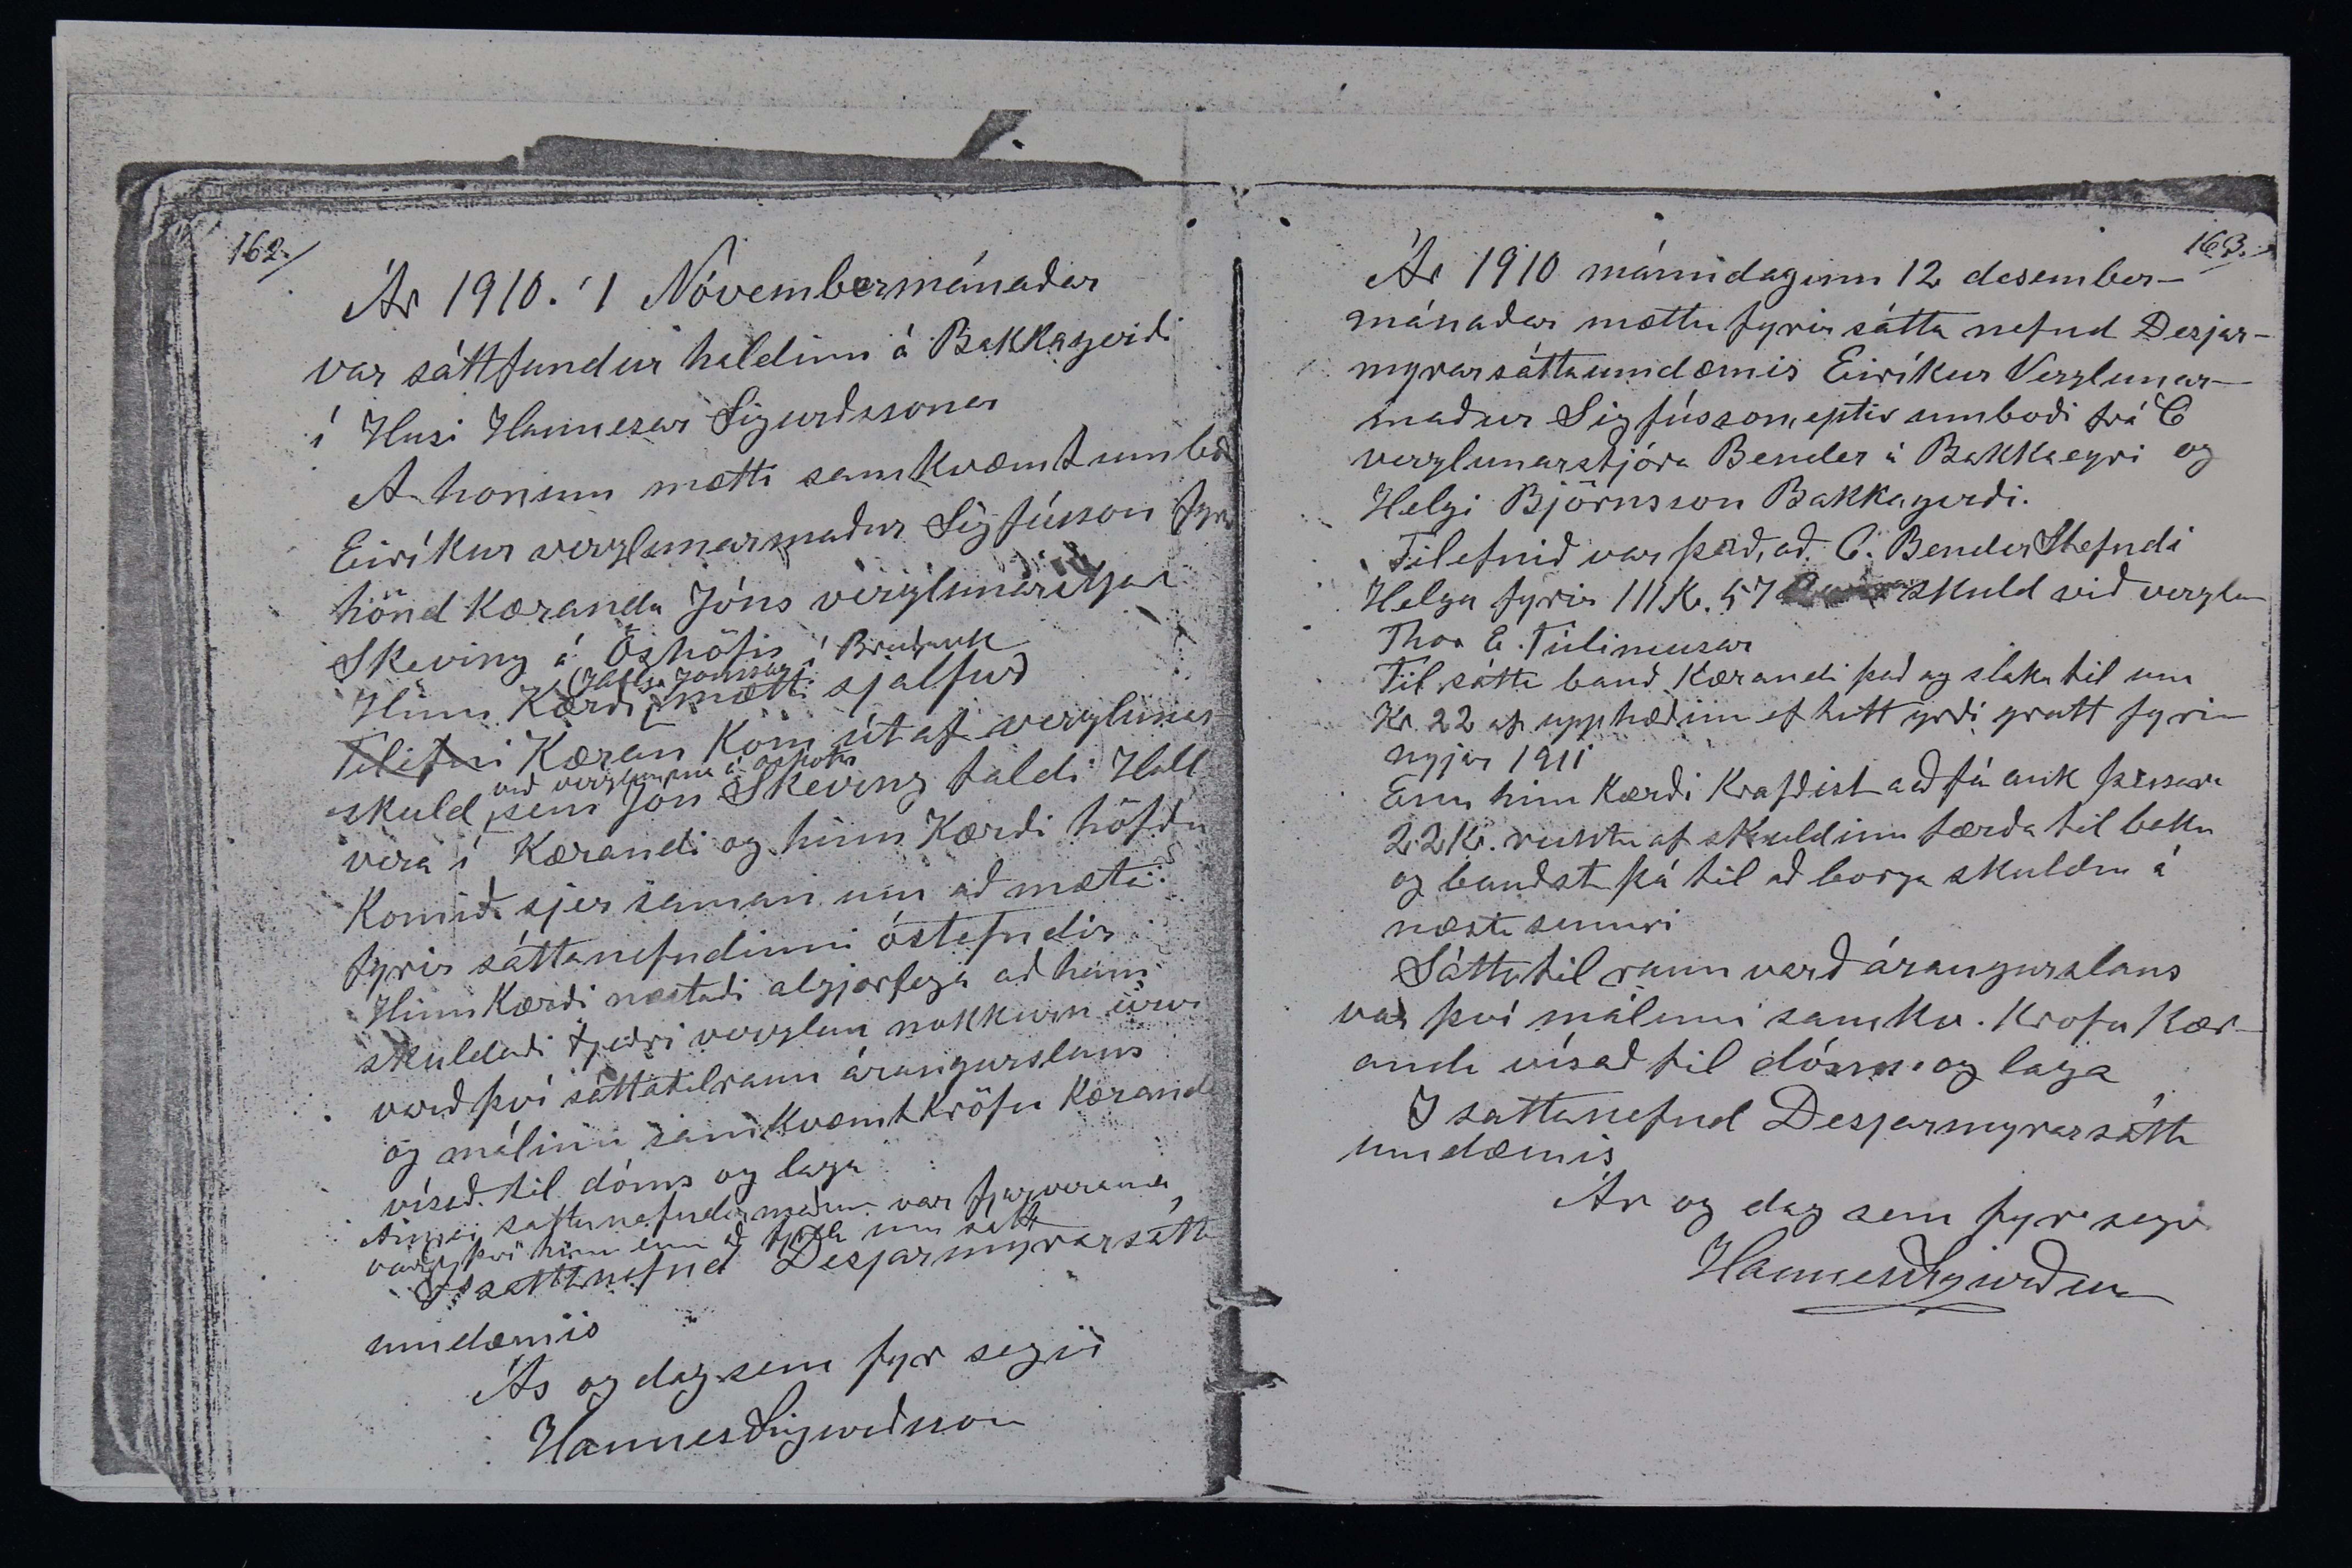 162./
Ár 1910. 1 Nóvembermánaðar
var sáttfundur haldinn á Bakkagerði
í Husi Hannesar Sigurðssonar
A honum mætti samkvæmt umboð
Eiríkur verzlunarmaður Sigfússon fyrir
hönd kæranda Jóns verzlunarstjóra
Skeving á Óshöfn í
Hinn Kærði Jónsson mætti sjalfur
Tilefni Kæran kom út af verzlunar
skuld við verzlunina á Óshöfn sem Jón Skeving taldi Hall
vera í Kærandi og hinn Kærði höfðu
Komið sjer saman um að mæta
fyrir sáttanefndinni óstefndir
Hinn Kærði neitaði algjörlega að hann
skuldaði tjeðri verzlun nokkurn
varð því sáttatilraun árangurslaus
og málinu samkvæmt kröfu Kæranda
vísað til dóms og laga
Annar sattanefndarmaður var fjarverandi
varð því hinn einn að fjalla um sátt
I sattanefnd Desjarmyrarsátta
umdæmis
Ár og dag sem fyr segir
Hannes Sigurðsson
163.
Ár 1910 mánudaginn 12 desember-
mánaðar mættu fyrir sátta nefnd Desjar-
myrarsáttaumdæmis Eiríkur Verzlunar-
maður Sigfússon, eptir umboði frá C
verzlunarstjóra Bender á Bakkaeyri og
Helgi Björnsson Bakkagerði.
Tilefnið var það, að C. Bender Stefndi
Helga fyrir 111 Kr. 57 skuld við verzlun
Thor E. Tuliniusar
Til sátta bauð Kærandi það að slaka til um
Kr. 22 af upphæðinni ef hitt yrði greitt fyrir
nyjár 1911
Enn hinn Kærði Krafðist að fá auk þessara
22 Kr. rentu af skuldinni færða til baka
og bauðst þá til að borga skuldina á
næsta sumri
Sáttatilraun varð árangurslaus
var því málinu samkv. Krofu Kær-
anda vísað til dóms og laga
I sattanefnd Desjarmyrarsátta
umdæmis
Ár og dag sem fyr segir
Hannes Sigurðsson